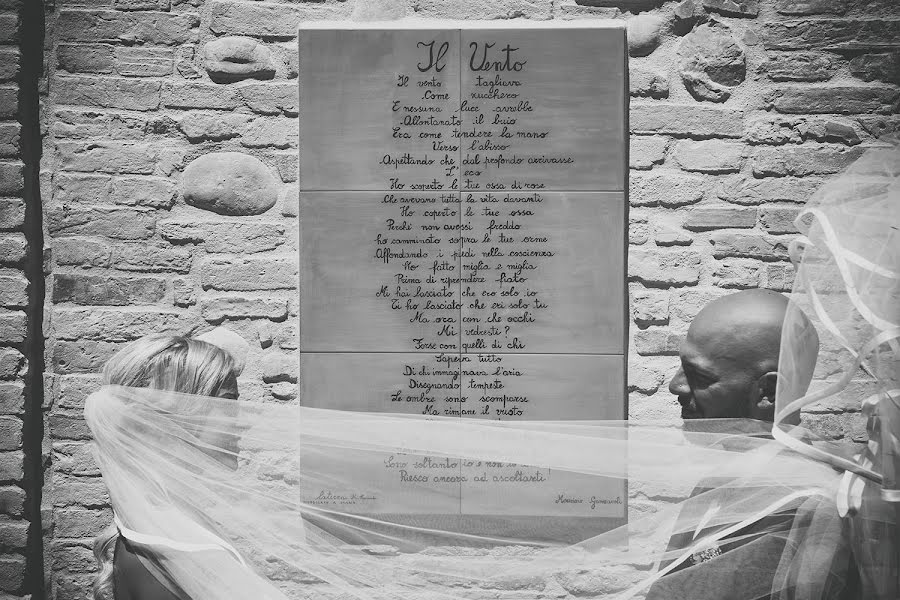 Il Vento
Il vento tagliava
Come zucchero
E nessuna luce avrebbe
Allontanato il buio
Era come tendere la mano
Verso l'abisso
Aspettando che dal profondo arrivasse
L'eco
Ho scoperto le tue ossa di rose
Che avevano tutta la vita davanti
Ho coperto le tue ossa
Perché non avessi freddo
ho camminato sopra le tue orme
Affondando i piedi nella coscienza
Ho fatto miglia e miglia
Prima di riprendere fiato
Mi hai lasciato che ero solo io
Ti ho lasciato che eri solo tu
Ma ora con che occhi
Mi vedresti?
Forse con quelli di chi
Sapeva tutto
Di chi immaginava l'aria
Disegnando tempeste
Le ombre sono scomparse
Ma rimane il vuoto
Sono soltanto io e non
Riesco ancora ad ascoltarti